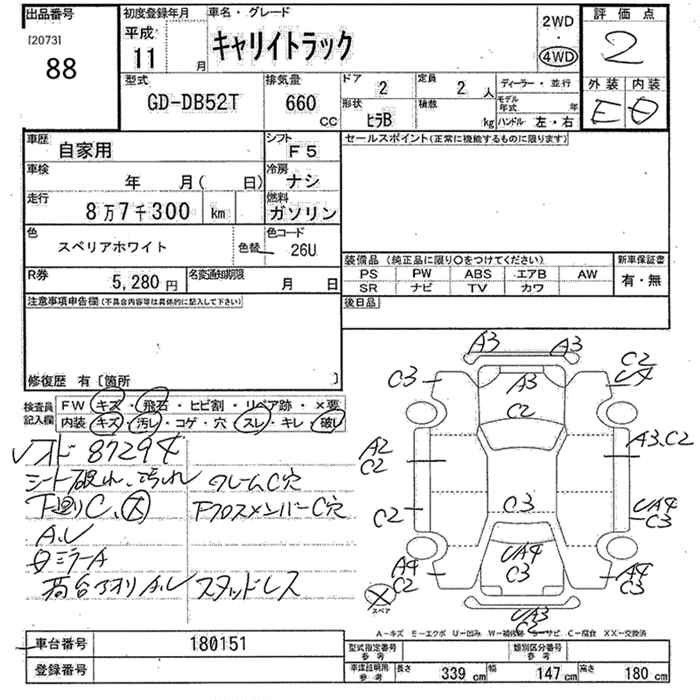 出品番号
[2073]
88
初度登録年月
平成
11 月
車名・グレード
キャリイトラック
2WD
・
4WD
評価点
2
外装 内装
E D
型式
GD-DB52T
排気量
660 CC
ドア
2
定員
2 人
形状
ヒラB
積載
kg
ディーラー・並行
モデル年式 年
ハンドル 左・右
車歴
自家用
シフト
F5
車検
年 月( 日)
冷房
ナシ
走行
8万7千300 km
燃料
ガソリン
色
スペリアホワイト
色替
色コード
26U
R券
5,280円
名変通知期限
月 日
セールスポイント(正常に機能するものに限ります)
装備品 (純正品に限り○をつけてください)
PS PW ABS エアB AW
SR ナビ TV カワ
新車保証書
有・無
後日品
注意事項申告欄(不具合内容等は具体的に記入して下さい)
修復歴 有〔箇所 〕
検査員記入欄
FW キズ・飛石・ヒビ割・リペア跡・×要
内装 キズ・汚レ・コゲ・穴・スレ・キレ・破レ
87294
シート破れ、汚れ
フレームC穴
下廻りC、大
FクロスメンバーC穴
A.U
ミラーA
荷台アオリA.U スタッドレス
A3 A3
C3 A3 C2
U4
C2
A2
C2
A3.C2
C2
C3
UA4
C3
A4
C2
UA4
C3
A4
C3
UA3
C2
スペア
A-キズ E-エクボ U-凹み W-補修跡 S-サビ C-腐食 XX-交換済
車台番号
180151
登録番号
型式指定番号
参考
類別区分番号
参考
車庫証明用
参考
長さ 339 cm 幅 147 cm 高さ 180 cm